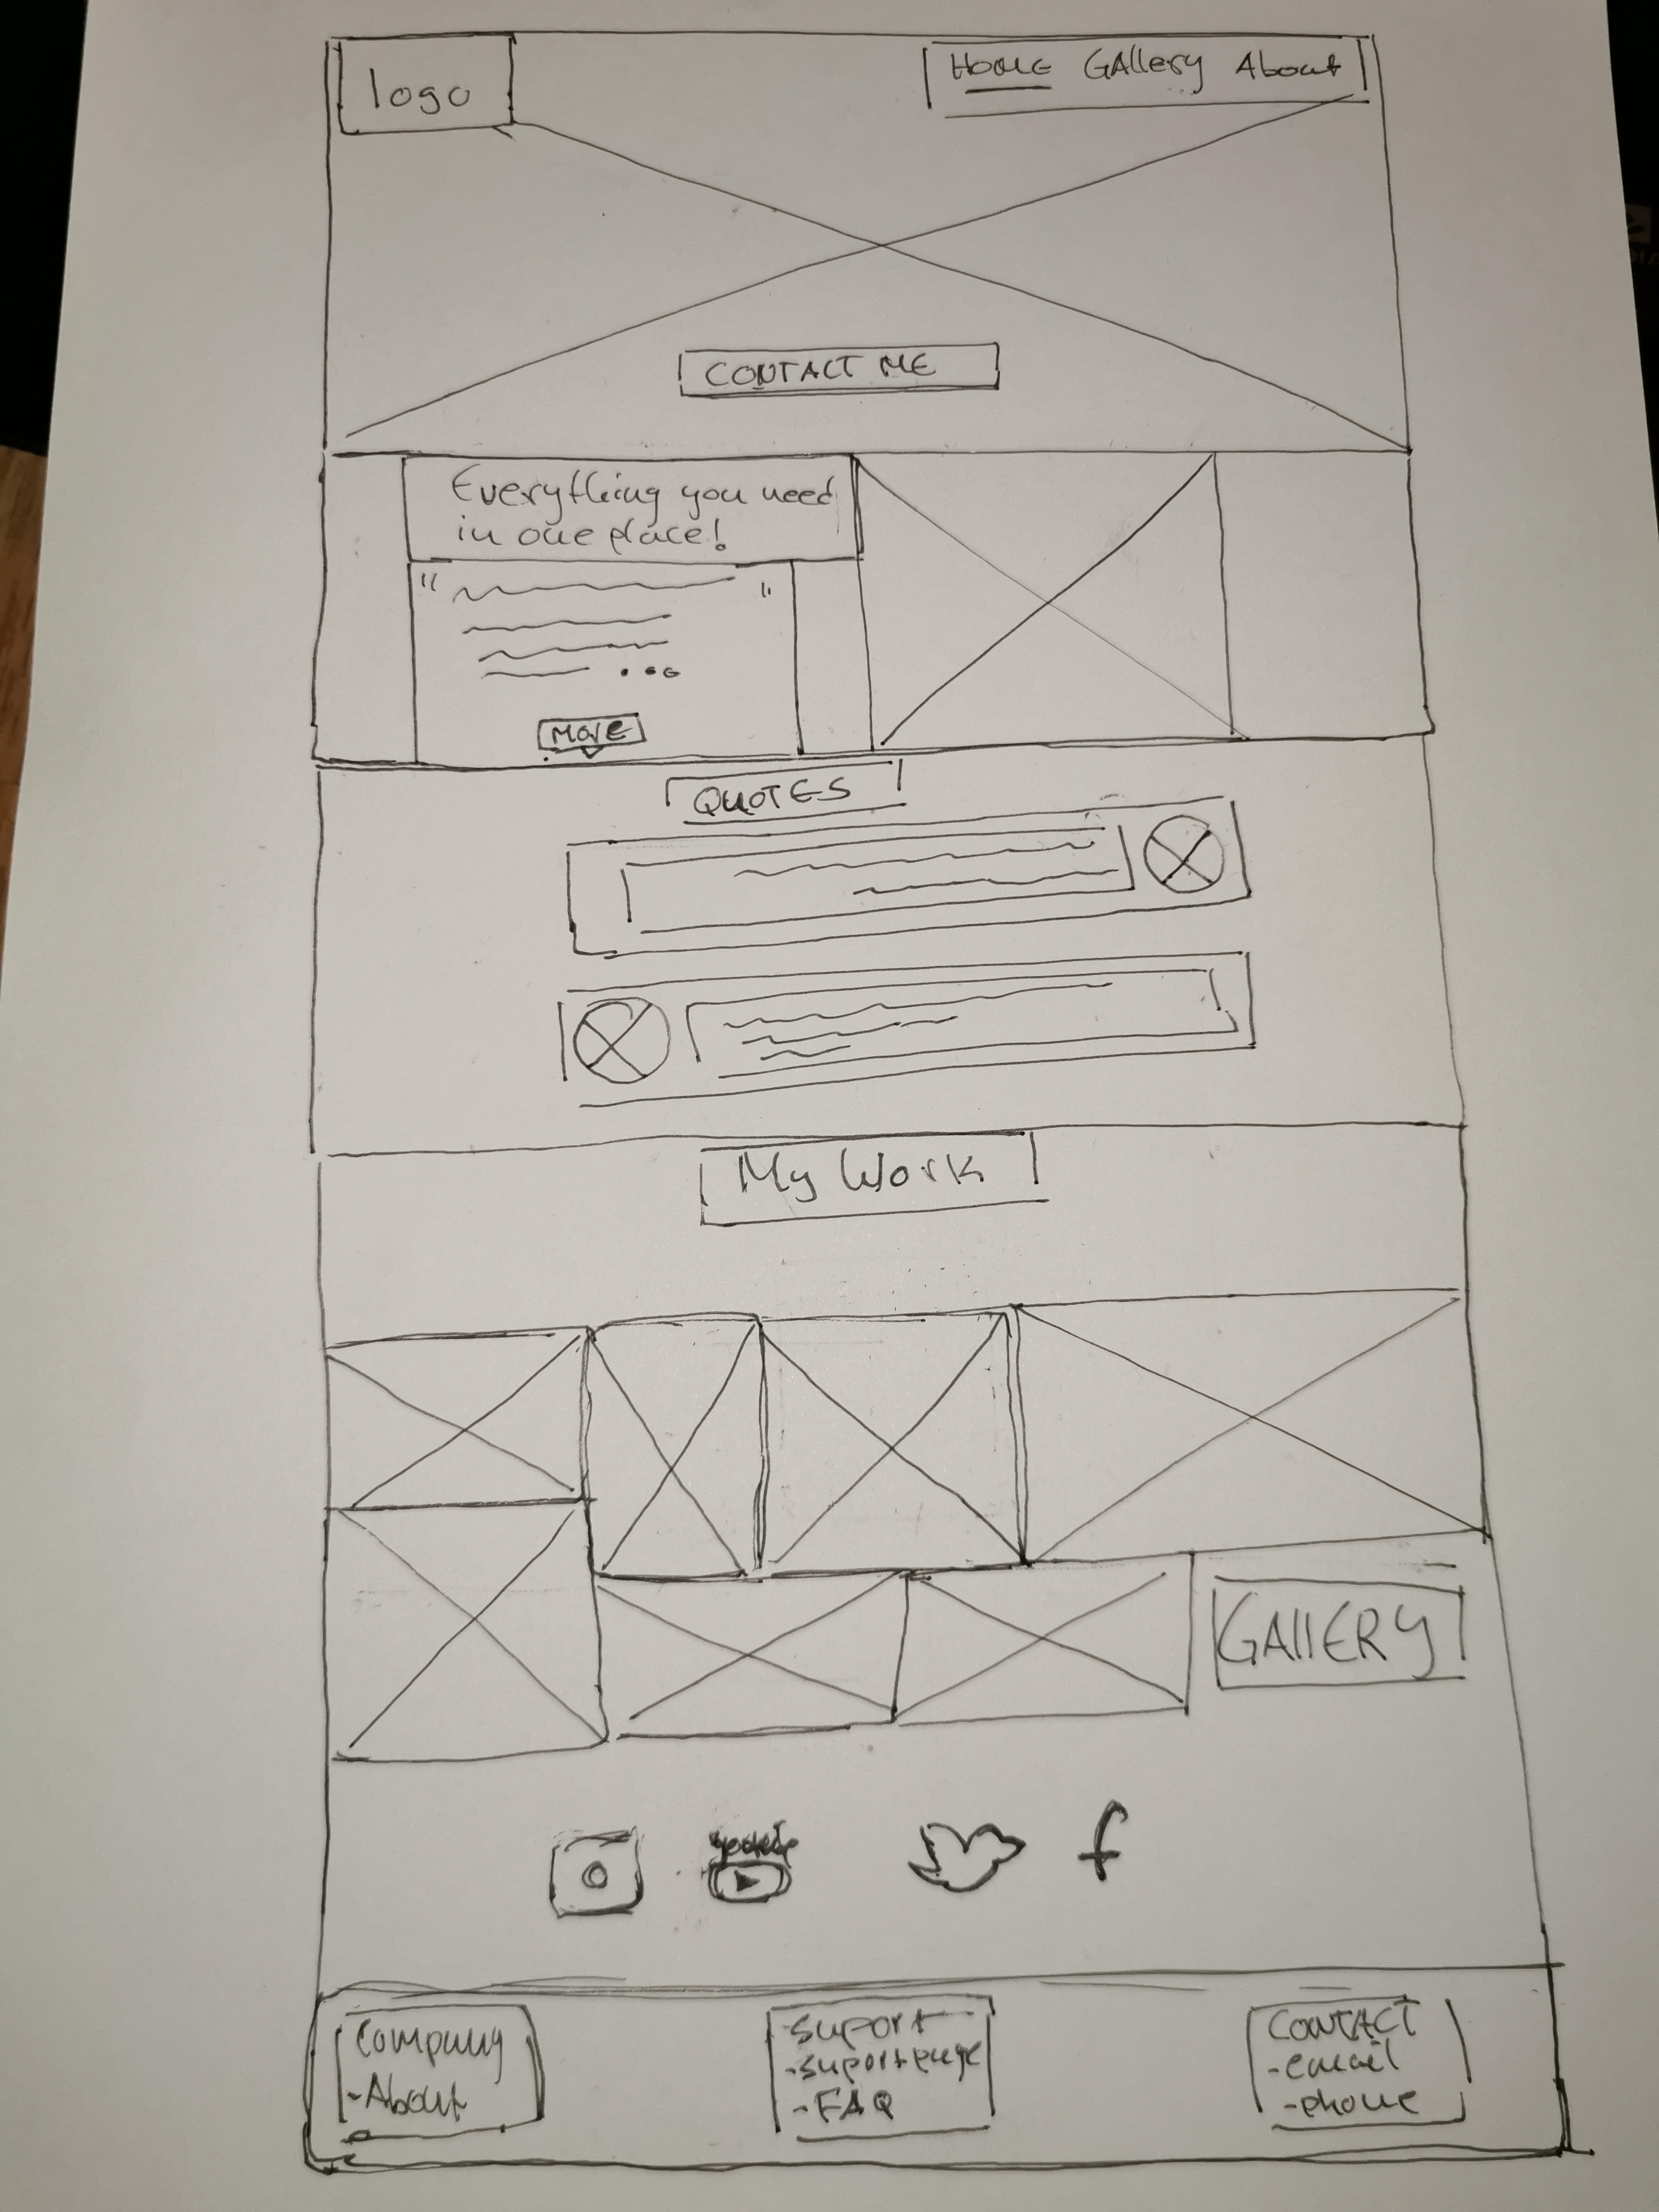 logo
HOME GAllery About
CONTACT ME
Everything you need
in one place!
" "
...
MORE
QUOTES
My Work
GAllERY
youtube
Company
-About
-suport
-suportpage
-FAQ
CONTACT
-email
-phone